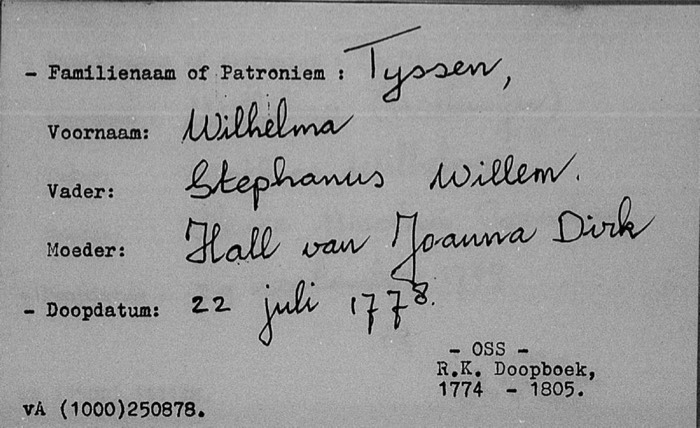 - Familienaam of Patroniem : Tyssen,
Voornaam: Wilhelma
Vader: Stephanus Willem.
Moeder: Hall van Joanna Dirk
- Doopdatum: 22 juli 1778.
- OSS -
R.K. Doopboek,
1774 - 1805.
vA (1000)250878.